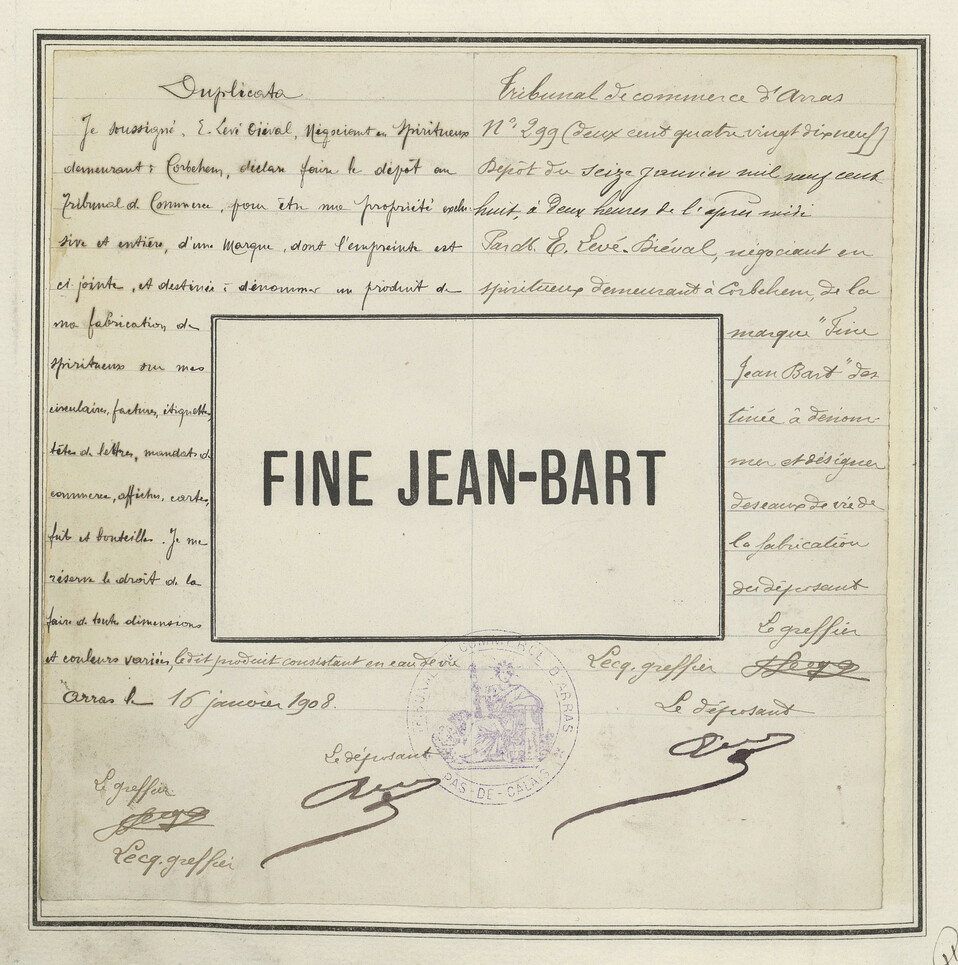 Duplicata
Je soussigné, E. Levé Biéval, Négociant en Spiritueux
demeurant à Corbehem, déclare faire le dépôt au
Tribunal de Commerce, pour être ma propriété exclu-
sive et entière, d'une Marque, dont l'empreinte est
ci jointe, et destinée à dénommer un produit de
ma fabrication de
spiritueux sur mes
circulaires, factures, étiquettes,
têtes de lettres, mandats de
commerce, affiches, cartes,
fûts et bouteilles. Je me
réserve le droit de la
faire de toute dimensions
et couleurs variées, ledit produit consistant en eau de vie
Arras le 16 janvier 1908.
Le déposant
Le greffier
Lecq. greffier
Tribunal de commerce d'Arras
N° 299 (deux cent quatre vingt dix neuf)
Dépôt du seize janvier mil neuf cent
huit, à deux heures de l'après midi
Par M. E. Levé-Biéval, négociant en
spiritueux demeurant à Corbehem, de la
marque "Fine
Jean Bart" des
tinée à dénom-
mer et désigner
des eaux de vie de
la fabrication
du déposant
Le greffier
Lecq. greffier
Le déposant
FINE JEAN-BART
TRIBUNAL DE COMMERCE D'ARRAS
PAS-DE-CALAIS